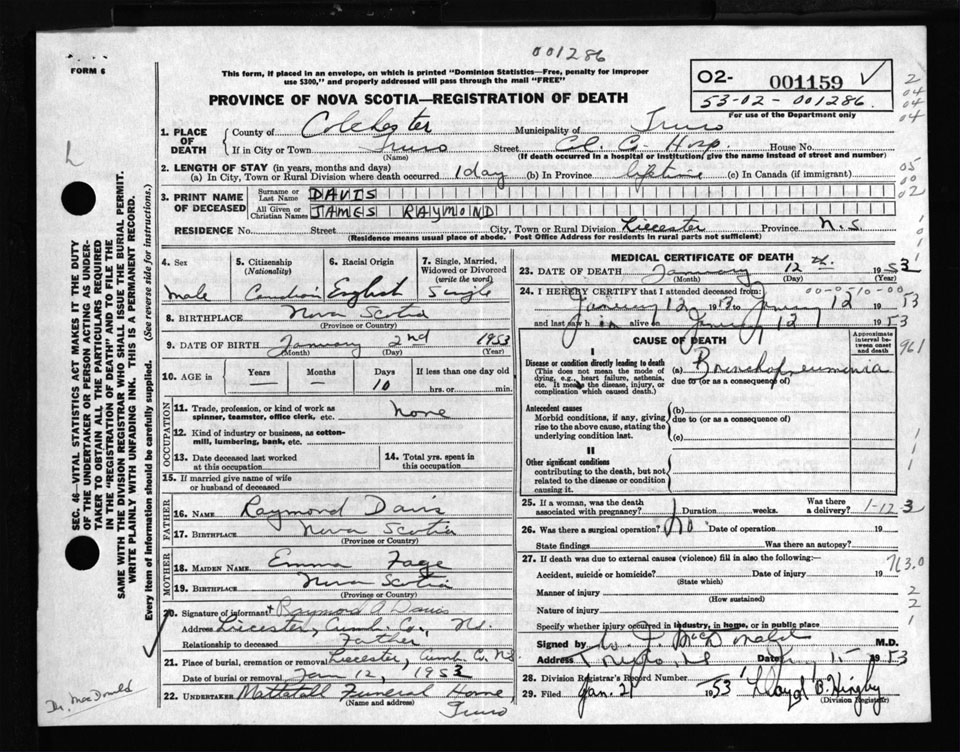 001286
FORM 6
This form, if placed in an envelope, on which is printed "Dominion Statistics—Free, penalty for improper
use $300," and properly addressed will pass through the mail "FREE"
02- 001159 ✓
53-02-001286.
For use of the Department only
PROVINCE OF NOVA SCOTIA—REGISTRATION OF DEATH
1. PLACE OF DEATH { County of Colchester Municipality of Truro
If in City or Town Truro Street Cl. C. Hosp. House No.
(Name) (If death occurred in a hospital or institution, give the name instead of street and number)
2. LENGTH OF STAY (in years, months and days)
(a) In City, Town or Rural Division where death occurred 1 day (b) In Province lifetime (c) In Canada (if immigrant)
3. PRINT NAME OF DECEASED { Surname or Last Name DAVIS
All Given or Christian Names JAMES RAYMOND
RESIDENCE No. Street City, Town or Rural Division Liecester Province N.S
(Residence means usual place of abode. Post Office Address for residents in rural parts not sufficient)
4. Sex 5. Citizenship (Nationality) 6. Racial Origin 7. Single, Married, Widowed or Divorced (write the word)
Male Canadian English Single
8. BIRTHPLACE Nova Scotia
(Province or Country)
9. DATE OF BIRTH January 2nd 1953
(Month) (Day) (Year)
10. AGE is { Years Months Days If less than one day old
10 hrs. or min.
OCCUPATION
11. Trade, profession, or kind of work as spinner, teamster, office clerk, etc. None
12. Kind of industry or business, as cotton-mill, lumbering, bank, etc.
13. Date deceased last worked at this occupation 14. Total yrs. spent in this occupation
15. If married give name of wife or husband of deceased
FATHER
16. NAME Raymond Davis
17. BIRTHPLACE Nova Scotia
(Province or Country)
MOTHER
18. MAIDEN NAME Emma Fage
19. BIRTHPLACE Nova Scotia
(Province or Country)
20. Signature of informant Raymond A Davis
Address Liecester, Cumb. Co., N.S.
Relationship to deceased Father
21. Place of burial, cremation or removal Liecester, Cumb. C. N.S
Date of burial or removal Jan 12, 1953
22. UNDERTAKER Mattatall Funeral Home
(Name and address) Truro
MEDICAL CERTIFICATE OF DEATH
23. DATE OF DEATH January 12th 1953
24. I HEREBY CERTIFY that I attended deceased from: 00-0510-00
January 12 1953 to January 12 1953
and last saw h im alive on January 12 1953
CAUSE OF DEATH
Approximate interval between onset and death
I
Disease or condition directly leading to death (a) Bronchopneumonia
(This does not mean the mode of dying, e.g., heart failure, asthenia, etc. It means the disease, injury, or complication which caused death.) due to (or as a consequence of)
Antecedent causes (b)
Morbid conditions, if any, giving rise to the above cause, stating the underlying condition last. due to (or as a consequence of)
(c)
II
Other significant conditions
contributing to the death, but not related to the disease or condition causing it.
25. If a woman, was the death associated with pregnancy? Duration weeks. Was there a delivery? 1-12 3
26. Was there a surgical operation? No Date of operation 19
State findings Was there an autopsy?
27. If death was due to external causes (violence) fill in also the following:—
Accident, suicide or homicide? Date of injury 19 763.0
(State which)
Manner of injury
(How sustained)
Nature of injury
Specify whether injury occurred in industry, in home, or in public place
Signed by McDonald M.D.
Address Date 15 1953
28. Division Registrar's Record Number
29. Filed Jan. 21 1953 Lloyd B. Hingby
(Division Registrar)
SEC. 46—VITAL STATISTICS ACT MAKES IT THE DUTY
OF THE UNDERTAKER OR PERSON ACTING AS UNDER-
TAKER TO OBTAIN ALL THE PARTICULARS REQUIRED
IN THE "REGISTRATION OF DEATH" AND TO FILE THE
SAME WITH THE DIVISION REGISTRAR WHO SHALL ISSUE THE BURIAL PERMIT.
WRITE PLAINLY WITH UNFADING INK. THIS IS A PERMANENT RECORD.
Every item of information should be carefully supplied. (See reverse side for instructions.)
Dr. MacDonald
2
04
04
05
00
02
961
2
2
1